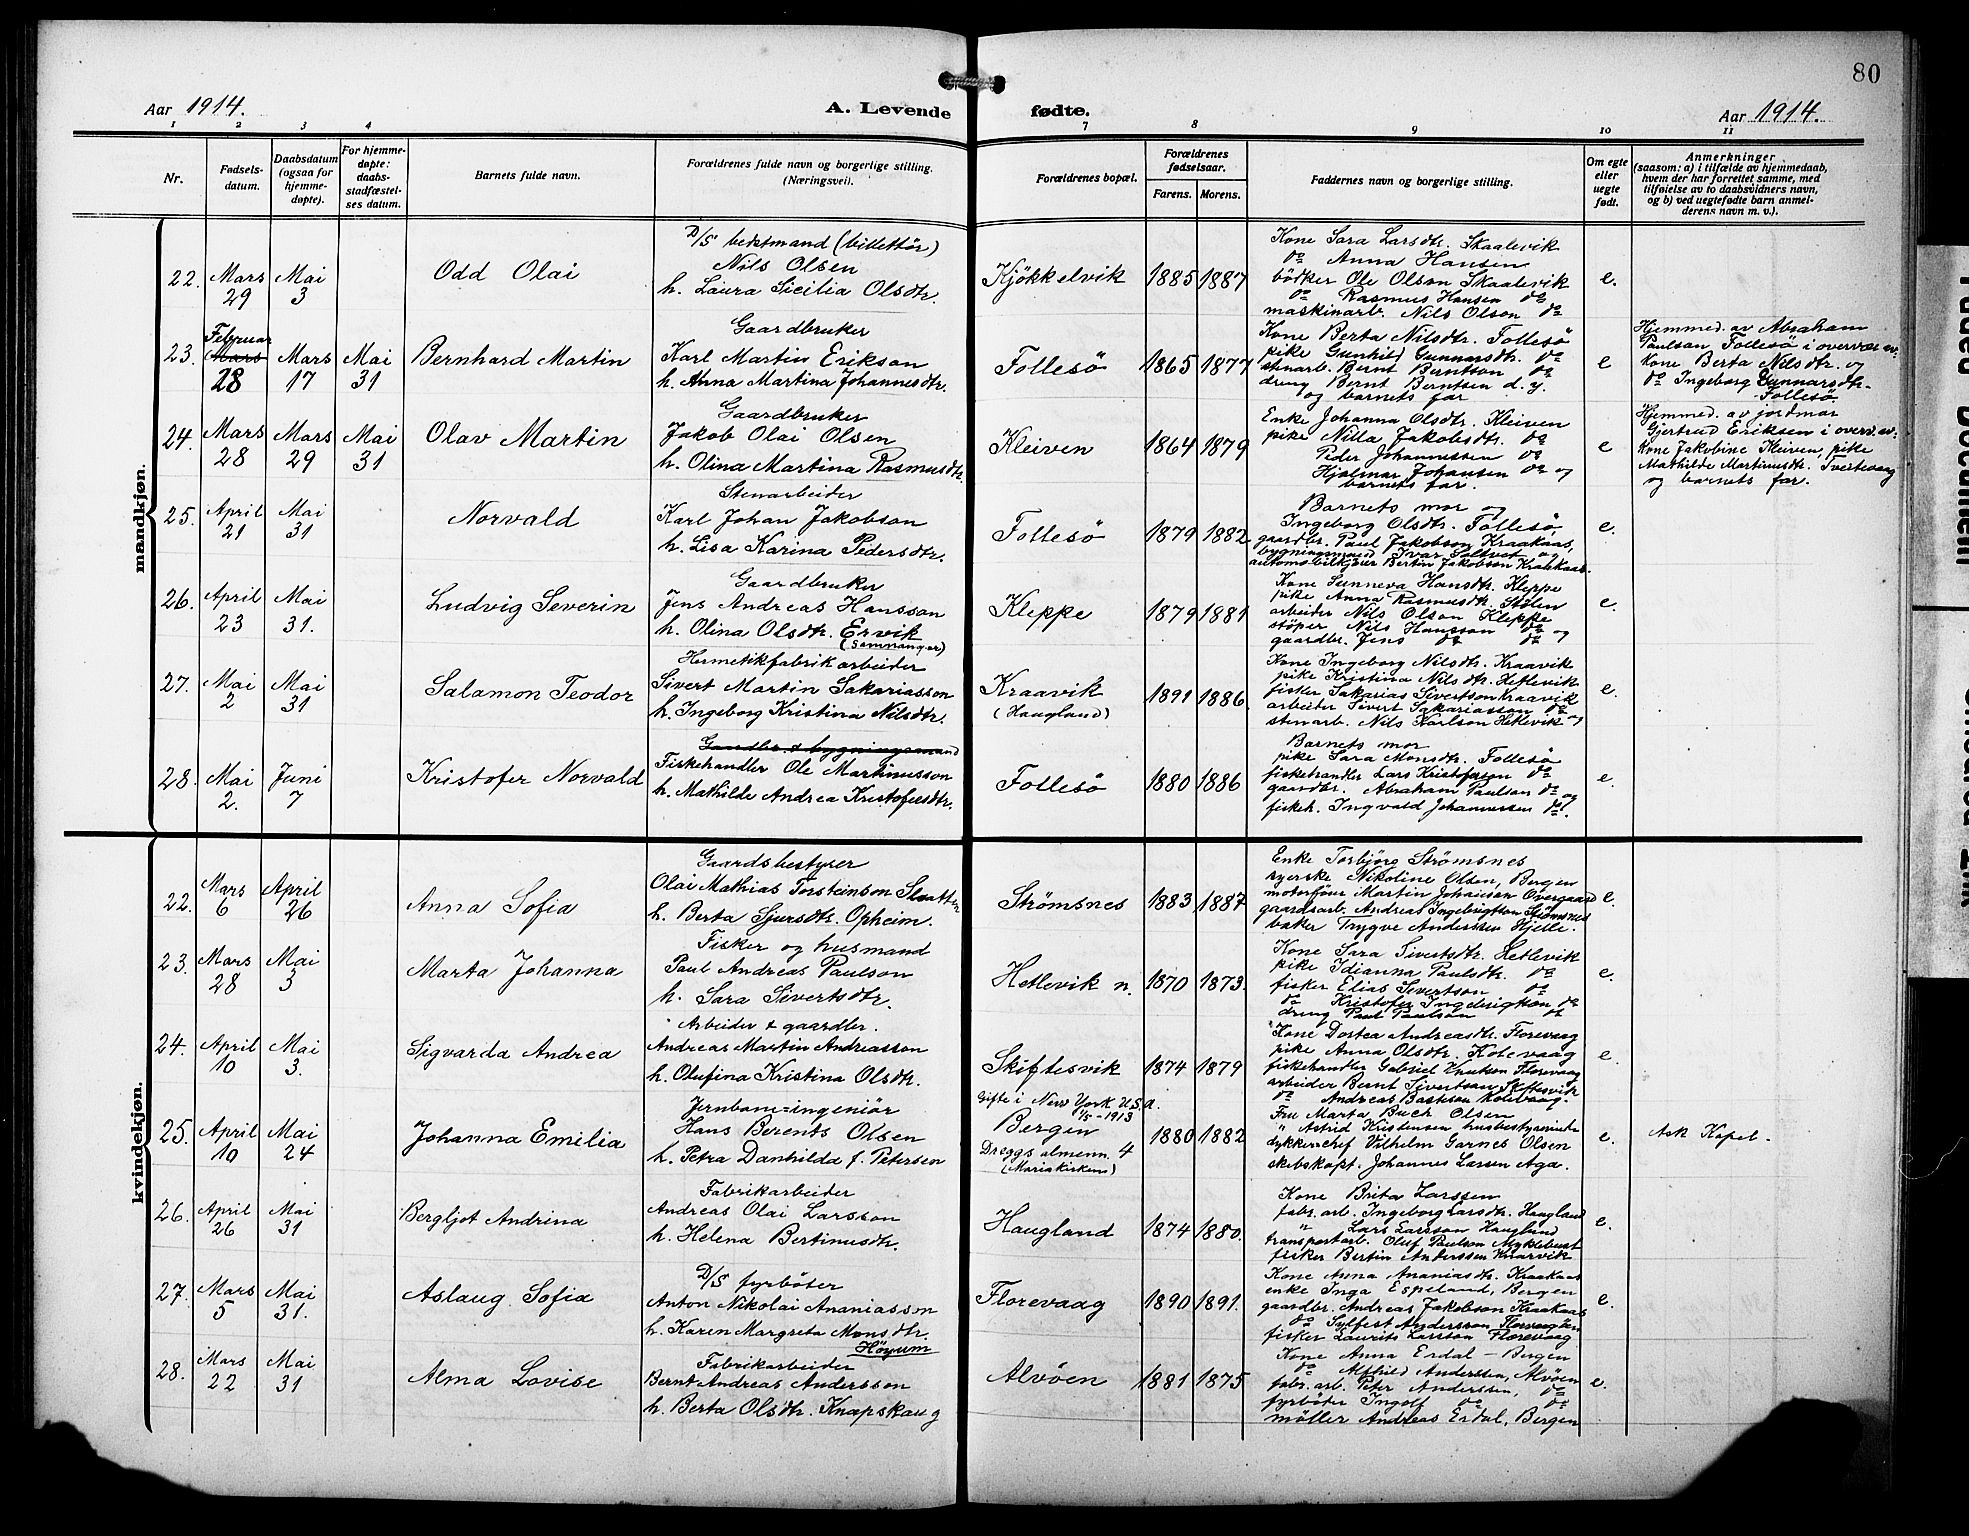 80
Aar 1914.
A. Levende fødte.
Aar 1914.
1 2 3 4 7 8 9 10 11
Nr.
Fødsels-
datum.
Daabsdatum
(ogsaa for
hjemme-
døpte).
For hjemme-
døpte:
daabs-
stadfæstel-
ses datum.
Barnets fulde navn.
Forældrenes fulde navn og borgerlige stilling.
(Næringsvei).
Forældrenes bopæl.
Forældrenes
fødselsaar.
Farens. Morens.
Faddernes navn og borgerlige stilling.
Om egte
eller
uegte
født.
Anmerkninger
(saasom: a) i tilfælde av hjemmedaab,
hvem der har forrettet samme, med
tilføielse av to daabsvidners navn,
og b) ved uegtefødte barn anmel-
derens navn m. v.).
mandkjøn.
22. Mars 29
Mai 3
Odd Olai
D/S bestmand (billettör)
Nils Olsen
h. Laura Sicilia Olsdtr.
Kjøkkelvik
1885 1887
Kone Sara Larsdtr. Skaalevik
do Anna Hansen
bödker Ole Olson Skaalevik
do Rasmus Hansen do
maskinarb. Nils Olson do
e.
23. Februar
Mars
28
Mars 17
Mai 31
Bernhard Martin
Gaardbruker
Karl Martin Erikson
h. Anna Martina Johannesdtr.
Follesö
1865 1877
Kone Berta Nilsdtr. Follesö
pike Gunhild Gunnarsdtr. do
stenarb. Bernt Berntson do
dreng Bernt Berntsen d. y.
og barnets far
e
Hjemmed. av Abraham
Paulsan Follesö i overvær av:
Kone Berta Nilsdtr. og
do Ingeborg Gunnarsdtr.
Follesö
24. Mars 28
Mars 29
Mai 31
Olav Martin
Gaardbruker
Jakob Olai Olsen
h. Olina Martina Rasmusdtr.
Kleiven
1864 1879
Enke Johanna Olsdtr. Kleiven
pike Nilla Jakobsdtr. do
Peder Johannessen do
Hjalmar Johansen do og
barnets far.
e
Hjemmed. av jordmor
Gjertrud Eriksen i overv. av:
Kone Jakobine Kleiven, pike
Mathilde Martinusdtr. Tvertevaag
og barnets far.
25. April 21
Mai 31
Norvald
Stenarbeider
Karl Johan Jakobson
h. Lisa Karina Pedersdtr.
Follesö
1879 1882
Barnets mor og
Ingeborg Olsdtr. Follesö
gaardbr. Paul Jakobson Kraakaas,
bygningsmand Ivar Soltvet og
automobilkjörer Bertin Jakobson Kraakaas.
e.
26. April 23
Mai 31.
Ludvig Severin
Gaardbruker
Jens Andreas Hansson
h. Olina Olsdtr. Ervik
(Samnanger)
Kleppe
1879 1881
Kone Sunneva Hansdtr. Kleppe
pike Anna Rasmusdtr. Stölen
arbeider Nils Olson Kleppe
stöper Nils Hansson do og
gaardbr. Jens do do
e.
27. Mai 2
Mai 31
Salamon Teodor
Hermetikfabrikarbeider
Sivert Martin Sakariasson
h. Ingeborg Kristina Nilsdtr.
Kraavik
(Haugland)
1891 1886
Kone Ingeborg Nilsdtr. Kraavik
pike Kristina Nilsdtr. Hetlevik
fisker Sakarias Sivertson Kraavik
arbeider Sivert Sakariasson do
stenarb. Nils Karlson Hetlevik
e.
28. Mai 2.
Juni 7
Kristofer Norvald
Gaardbr. & bygningsmand
Fiskehandler Ole Martinusson
h. Mathilde Andrea Kristofersdtr.
Follesö
1880 1886
Barnets mor
pike Sara Monsdtr. Follesö
fiskehandler Lars Kristofersön do
gaardbr. Abraham Paulson do og
fiskeh. Ingvald Johannessen do.
e.
kvindekjøn.
22. Mars 6
April 26
Anna Sofia
Gaardsbestyrer
Olai Mathias Torsteinson Slaatten
h. Berta Sjursdtr. Opheim.
Strømsnes
1883 1887
Enke Torbjörg Strömsnes
syerske Nikoline Olsen, Bergen
motorförer Martin Johansen Övergaard
gaardsarb. Andreas Ingebrigtson Strömsnes
baker Trygve Anderssen Hjelle.
e.
23. Mars 28
Mai 3
Marta Johanna
Fisker og husmand
Paul Andreas Paulson
h. Sara Sivertsdtr.
Hetlevik n.
1870 1873.
Kone Sara Sivertsdtr. Hetlevik
pike Idianna Paulsdtr. do
fisker Elias Sivertson do
do Kristofer Ingebrigtson do
dreng Paul Paulson do
e.
24. April 10
Mai 3.
Sigvarda Andrea
Arbeider & gaardbr.
Andreas Martin Andreasson
h. Olufina Kristina Olsdtr.
Skiftesvik
1874 1879
Kone Dortea Andreasdtr. Florevaag
pike Anna Olsdtr. Kolevaag
fiskehandler Gabriel Knutson Florevaag
arbeider Bernt Sivertson Skiftesvik
do Andreas Basteson Kolevaag.
e.
25. April 10
Mai 24
Johanna Emilia
Jernbane=ingeniör
Hans Berents Olsen
h. Petra Danhilda f. Petersen
Gifte i New York U.S.A.
1/5-1913
Bergen
Dreggs almenn. 4
(Mariakirken)
1880 1882
Fru Marta Buch Olsen
" Astrid Kristensen husbestyrerinde
dykkerchef Vilhelm Garnes Olsen
skibskapt. Johannes Larsen Aga.
e.
Ask Kapel.
26. April 26
Mai 31
Bergljot Andrina
Fabrikarbeider
Andreas Olai Larsson
h. Helena Bertinusdtr.
Haugland
1874 1880.
Kone Brita Larssen
fabr. arb. Ingeborg Larsdtr. Haugland
" Lars Larsson Haugland
transportarb. Oluf Paulson Myklebust
fisker Bertin Anderssen Knarvik
e.
27. Mars 5
Mai 31.
Aslaug Sofia
D/S fyrböter
Anton Nikolai Ananiasson
h. Karen Margreta Monsdtr.
Höyum
Florevaag
1890 1891.
Kone Anna Ananiasdtr. Kraakaas
enke Inga Espeland, Bergen
gaardbr. Andreas Jakobson Kraakaas
do Sylfest Andersson Florvaagöen
fisker Laurits Larsson Florevaag
e.
28. Mars 22
Mai 31
Alma Lovise
Fabrikarbeider
Bernt Andreas Andersson
h. Berta Olsdtr. Knapskaug
Alvöen
1881 1875
Kone Anna Erdal - Bergen
do Alfhild Anderssen, Alvöen
fabr. arb. Peter Anderssen, do
fyrböter Ingolf do do
möller Andreas Erdal, Bergen
e.